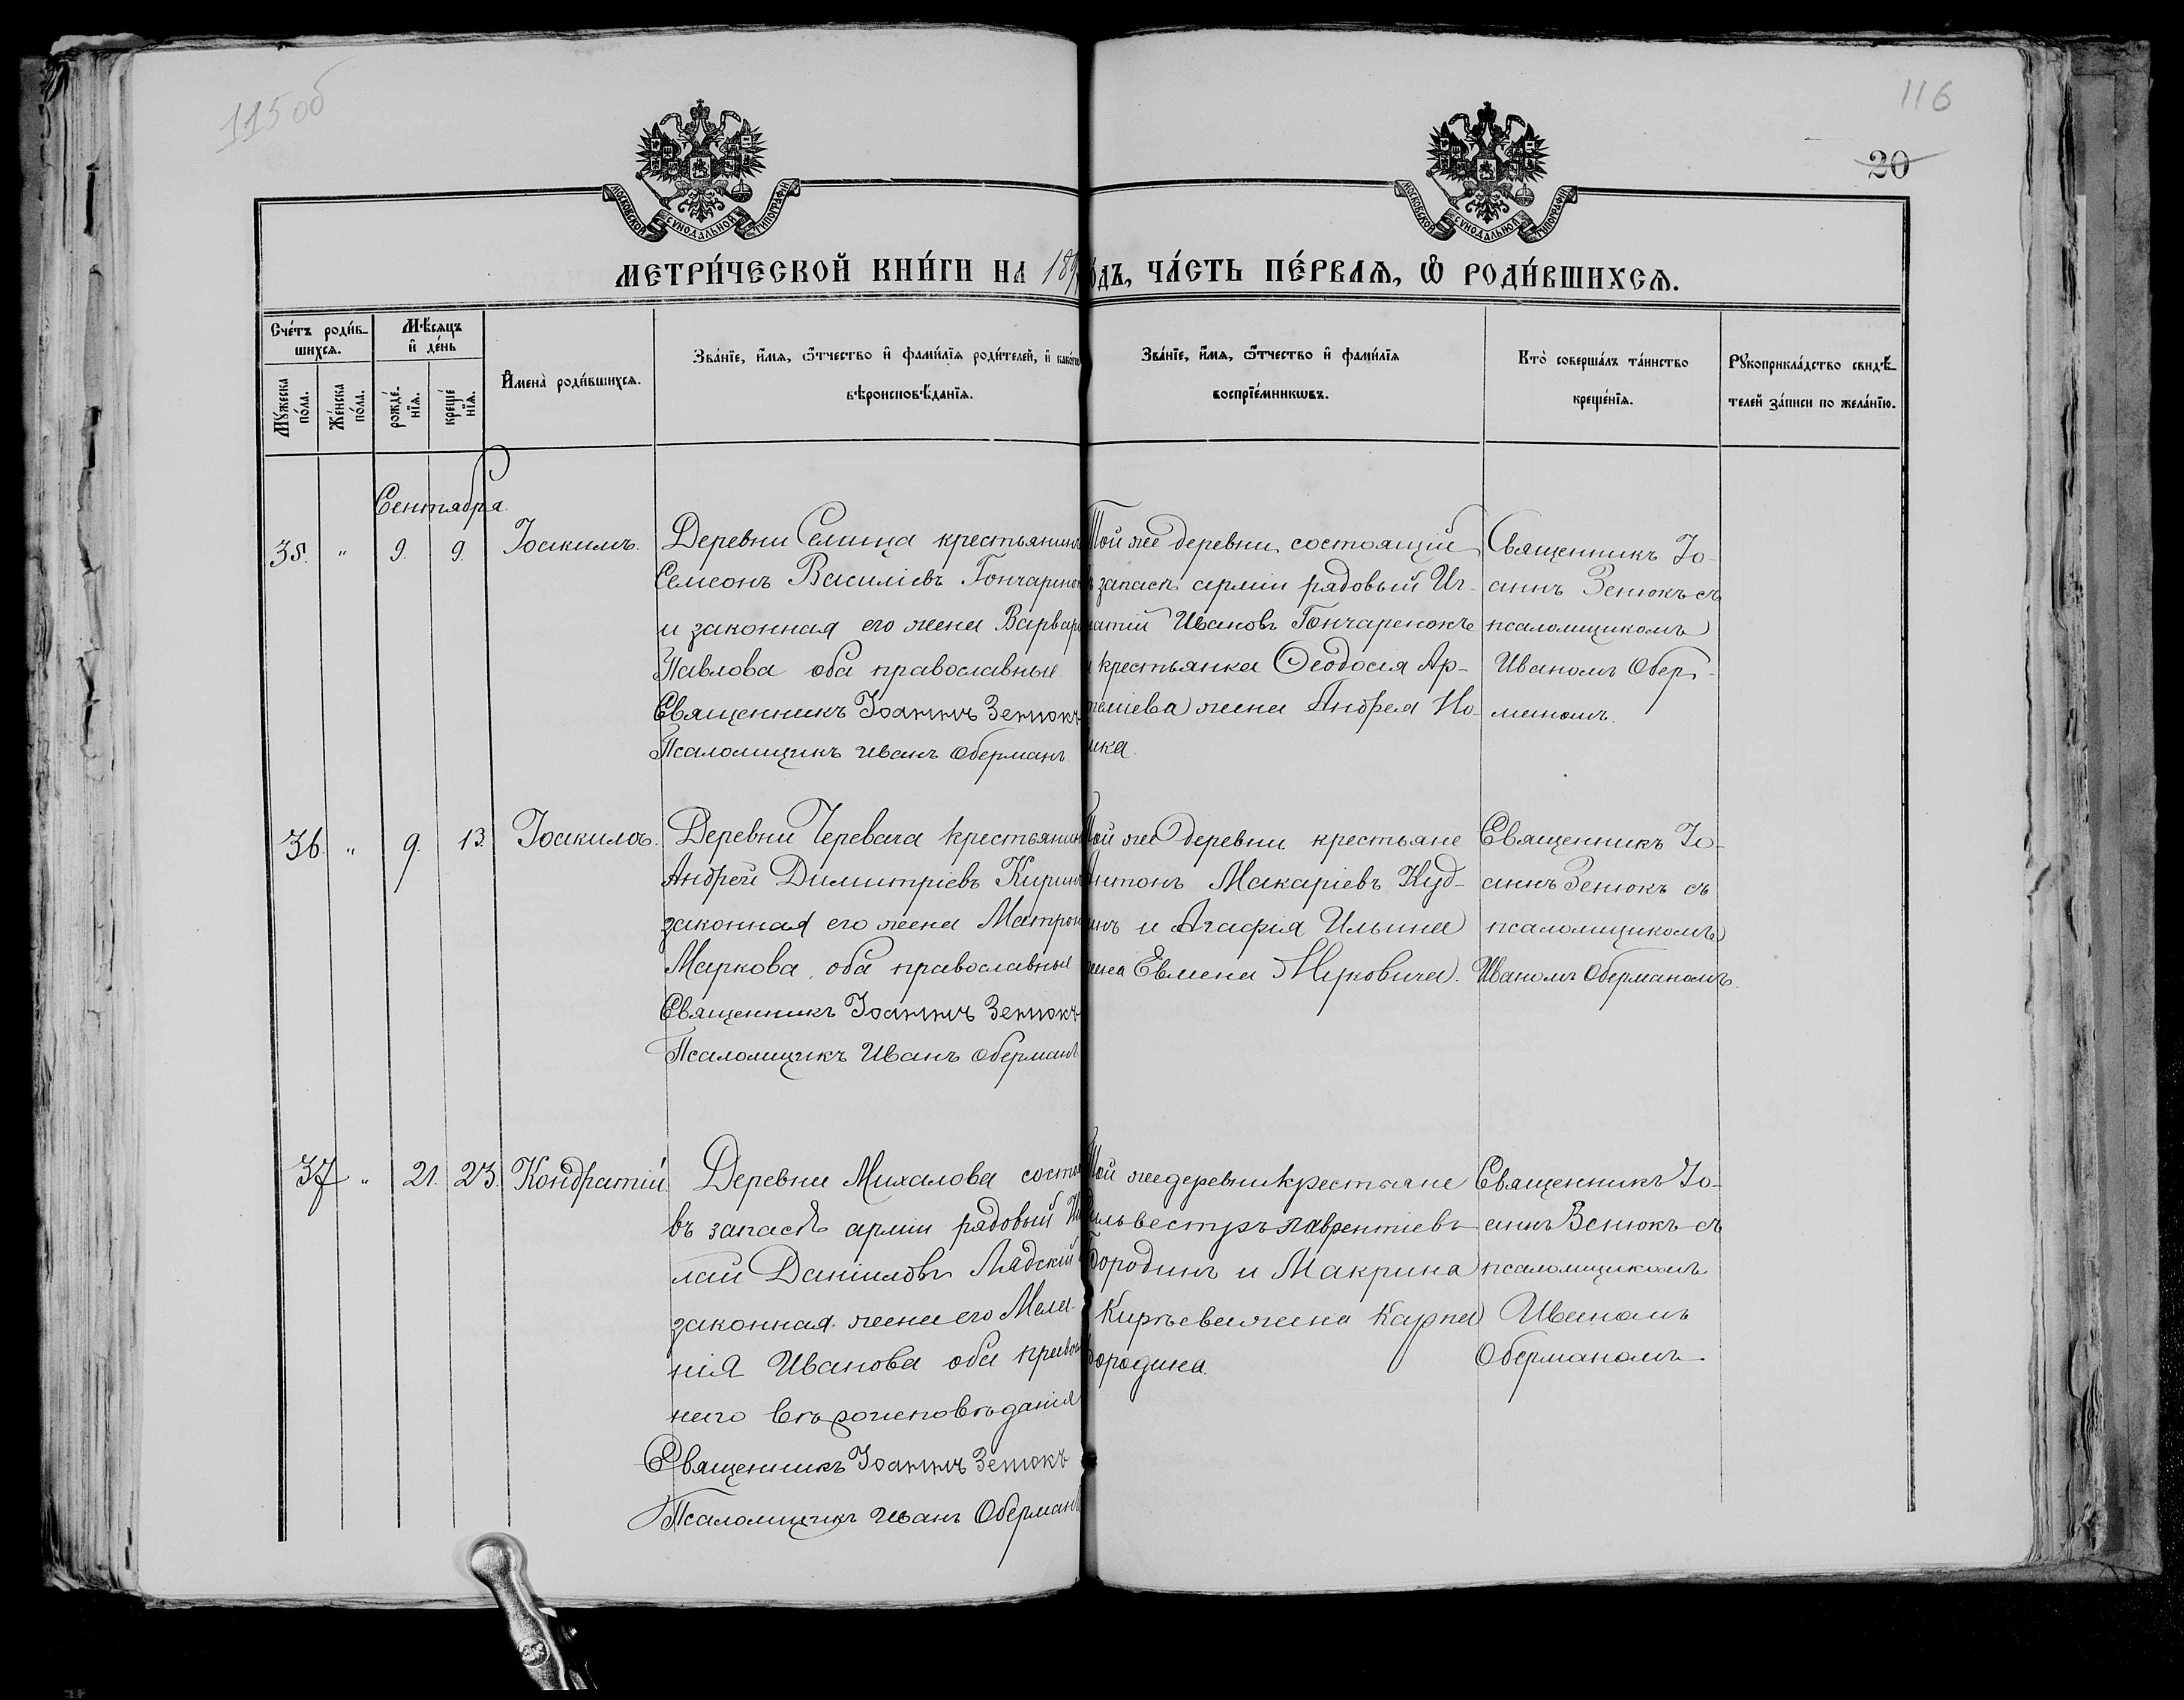 115 об
116
20
МОСКОВСКОЙ СУНОДАЛЬНОЙ ТИПОГРАФІИ
МОСКОВСКОЙ СУНОДАЛЬНОЙ ТИПОГРАФІИ
МЕТРИ́ЧЕСКОЙ КНИ́ГИ НА 189
ОДЪ, ЧА́СТЬ ПЕ́РВАѦ, Ѡ РОДИ́ВШИХСѦ.
Сче́тъ роди́в-
шихсѧ.
Мѣ́сѧцъ
и҆ де́нь
Мꙋ́жеска
по́ла.
Же́нска
по́ла.
рожде́-
нїѧ.
креще́
нїѧ.
И҆мена̀ роди́вшихсѧ.
Зва́нїе, и҆́мѧ, ѻ҆́тчество и҆ фами́лїѧ роди́телей, и҆ како́гѡ
вѣроисповѣ́данїѧ.
Зва́нїе, и҆́мѧ, ѻ҆́тчество и҆ фами́лїѧ
воспрїе́мникѡвъ.
Кто̀ соверша́лъ та́инство
креще́нїѧ.
Рꙋкоприкла́дство свидѣ́-
телей за́писи по жела́нїю.
Сентября.
35. " 9. 9. Іоакимъ.
Деревни Селища крестьянинъ
Семеонъ Василіевъ Гончаренок
и законная его жена Варвара
Павлова оба православные
Священникъ Іоаннъ Зенюкъ
Псаломщикъ Иванъ Оберманъ
Той же деревни состоящій
въ запасѣ арміи рядовый Иг-
натій Ивановъ Гончаренокъ
и крестьянка Ѳеодосія Ар-
жена Андрея Но-
ика.
Священникъ Іо-
аннъ Зенюкъ съ
псаломщикомъ
Иваномъ Обер-
маномъ.
36. " 9. 13. Іоакимъ.
Деревни Черевача крестьянинъ
Андрей Димитріевъ Кирин
законная его жена Матрона
Маркова, оба православные
Священникъ Іоаннъ Зенюкъ
Псаломщикъ Иванъ Оберманъ
Той же деревни крестьяне
Антонъ Макаріевъ Куд-
инъ и Агафія Ильина
жена Евмена Муковича.
Священникъ Іо-
аннъ Зенюкъ съ
псаломщикомъ
Иваномъ Оберманомъ.
37 " 21. 23. Кондратій.
Деревни Михалова состоя
въ запасѣ арміи рядовый Ни
лай Даніиловъ Лядскій
законная жена его Мела-
нія Иванова оба правос
наго вѣроисповѣданія
Священникъ Іоаннъ Зенюкъ
Псаломщикъ Иванъ Оберманъ
Той же деревни крестьяне
Сильвестръ Лаврентіевъ
Бородинъ и Макрина
Киріева жена Карпа
Бородина.
Священникъ Іо-
аннъ Зенюкъ съ
псаломщикомъ
Иваномъ
Оберманомъ.